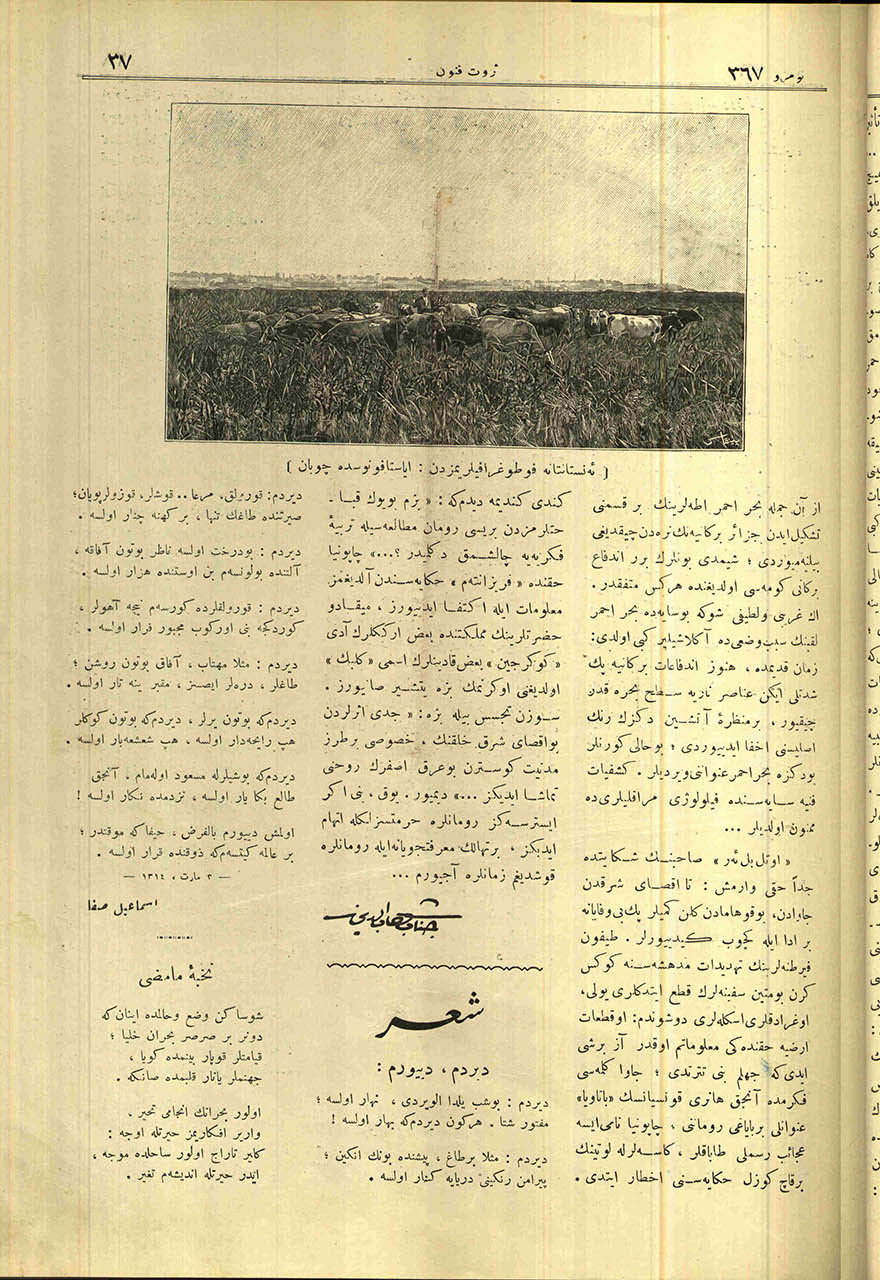 نومرو ٣٦٧
ثروت فنون
٣٧
( ئه‌نستانتانه فوطوغرافیلریمزدن : ایاستافونوسده چوبان )
از آن جمله بحر احمر اطه‌لرینك بر قسمنی
تشکیل ایدن جزائر برکانیه‌نك نره‌دن چیقدیغی
بیلنه‌میوردی ؛ شیمدی بونلرك برر اندفاع
برکانی کومه‌سی اولدیغنده هرکس متفقدر .
اك غریبی ولطیفی شوکه بوسایه‌ده بحر احمر
لقبنك سبب وضعی‌ده آكلاشیلیر کبی اولدی :
زمان قدیمده ، هنوز اندفاعات برکانیه پك
شدتلی ایکن عناصر ناریه سطح بحره قدر
چیقیور ، برمنظرهٔ آتشین دکزك رنك
اصلیسنی اخفا ایدییوردی ؛ بوحالی کورنلر
بودکزه بحر احمر عنواننی ویردیلر . کشفیات
فنیه سایه‌سنده فیلولوژی مراقلیلری‌ده
ممنون اولدیلر ...
« اوتل بل ئه‌ر » صاحبنك شکایتده
جداً حقی وارمش : تا اقصای شرقدن
جاوادن ، یوقوهامادن کلن کمیلر پك بی‌وفایانه
بر ادا ایله کچوب کیدییورلر . طیفون
فیرطنه‌لرینك تهدیدات مدهشه‌سنه کوکس
کرن بومتین سفینه‌لرك قطع ایتدکلری یولی ،
اوغرادقلری اسکله‌لری دوشوندم : اوقطعات
ارضیه حقنده‌کی معلوماتم اوقدر آز برشی
ایدی‌که جهلم بنی تترتدی ؛ جاوا کله‌سی
فکرمده آنجق هانری قونسیانسك «باتاویا»
عنوانلی بربایاغی روماننی ، چاپونیا نامی‌ایسه
عجائب رسملی طاباقلر ، کاسه‌لرله لوتینك
برقاچ کوزل حکایه‌سنی اخطار ایتدی .
کندی کندیمه دیدم‌که : « بزم بویوك قبا -
حتلرمزدن بریسی رومان مطالعه‌سیله تربیهٔ
فکریه‌یه چالشمق دکلیدر ؟...» چاپونیا
حقنده « قریزانته‌م » حکایه‌سندن آلدیغمز
معلومات ایله اکتفا ایدییورز ، میقادو
حضرتلرینك مملکتنده بعض ارککلرك آدی
«کوکرجین» بعض قادینلرك اسمی «کلبك»
اولدیغنی اوکرنمك بزه یتشیر صانیورز .
سوزن تجسس بیله بزه : « جدی اثرلردن
بواقصای شرق خلقنك ، خصوصی برطرز
مدنیت کوسترن بوعرق اصفرك روحنی
تماشا ایدیکز ...» دیمیور . یوق ، بنی اکر
ایسترسه‌کز رومانلره حرمتسزلکله اتهام
ایدیکز ، برتهالك معرفتجویانه‌ایله رومانلره
قوشدیغم زمانلره آجیورم ...
جناب شهاب‌الدین
شعر
دیردم ، دییورم :
دیردم : بوشب یلدا الویردی ، نهار اولسه ؛
مفتور شتا . هرکون دیردم‌که بهار اولسه !
دیردم : مثلا برطاغ ، پیشنده بونك انکین ؛
پیرامن رنکینی دریایه کنار اولسه .
دیردم : قورولق، مرعا.. قوشلر، قوزولرپویان؛
صیرتنده طاغك تنها ، بر کهنه چنار اولسه .
دیردم : بودرخت اولسه ناظر بوتون آفاقه ،
آلتنده بولونسه‌م بن اوستنده هزار اولسه .
دیردم : قورولقلرده کورسه‌م نیجه آهولر ،
کوردکجه بنی اورکوب مجبور فرار اولسه .
دیردم : مثلا مهتاب ، آفاق بوتون روشن ؛
طاغلر ، دره‌لر ایصسز ، مقبر ینه تار اولسه .
دیردم‌که بوتون یرلر ، دیردم‌که بوتون کوکلر
هپ رایحه‌دار اولسه ، هپ شعشعه‌بار اولسه .
دیردم‌که بوشیلرله مسعود اوله‌مام ، آنجق
طالع بکا یار اولسه ، نزدمده نکار اولسه !
اولمش دییورم بالفرض ، حیفاکه موقتدر ؛
بر عالمه کیتسه‌م‌که ذوقنده قرار اولسه .
— ٢ مارت ، ١٣١٤ —
اسماعیل صفا
نخبهٔ مامضی
شوساکن وضع وحالمده اینان‌که
دونر بر صرصر بحران خلیا ؛
قیامتلر قوپار بینمده کویا ،
جهنملر یانار قلبمده صانکه .
اولور بحرانك انجامی تحیر ،
واریر افکاریمز حیرتله اوجه :
کلیر تاراج اولور ساحلده موجه ،
ایدر حیرتله اندیشه‌م تغیر .